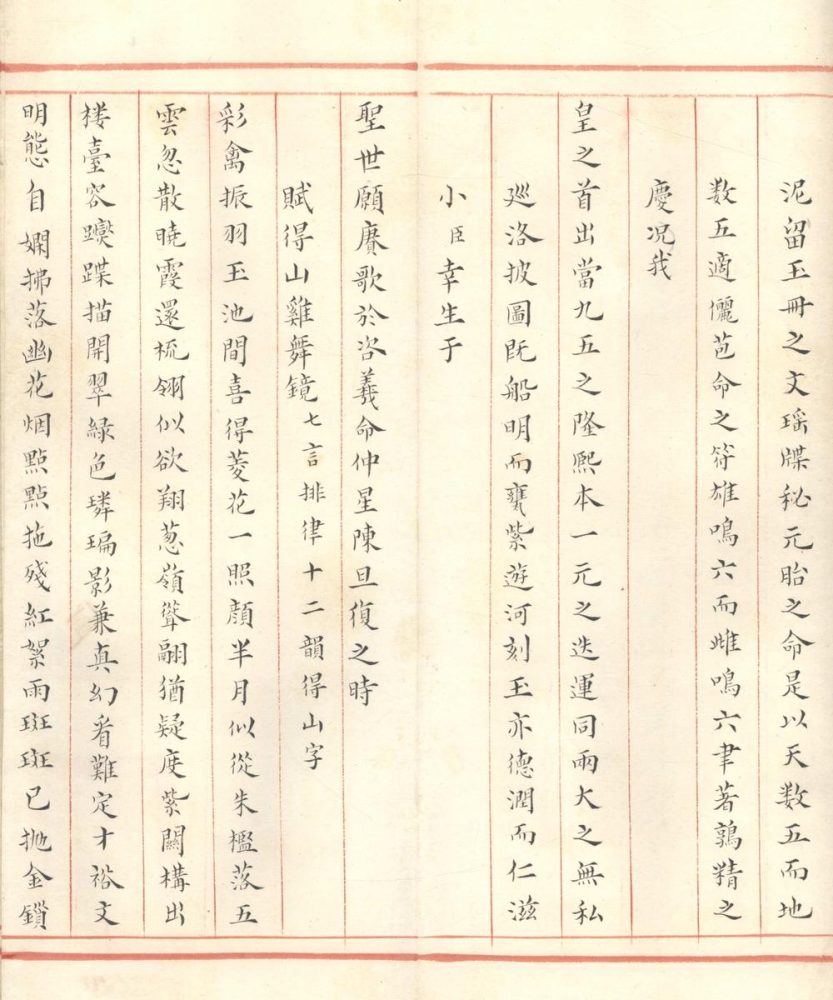 泥留玉冊之文瑶牒秘元胎之命是以天数五而地
数五適儷苞命之符雄鳴六而雌鳴六聿著鶉精之
慶况我
皇之首出當九五之隆熙本一元之迭運同兩大之無私
廵洛披圖既船明而甕紫遊河刻玉亦德潤而仁滋
小臣幸生于
聖世願賡歌於咨羲命仲星陳旦復之時
賦得山雞舞鏡七言排律十二韻得山字
彩禽振羽玉池間喜得菱花一照顔半月似從朱檻落五
雲忽散曉霞還梳翎似欲翔葱嶺聳翮猶疑度紫關構出
楼臺容躞蹀描開翠緑色璘㻞影兼真幻看難定才裕文
明態自嫻拂落幽花烟點點拖殘紅絮雨斑斑已抛金鎖